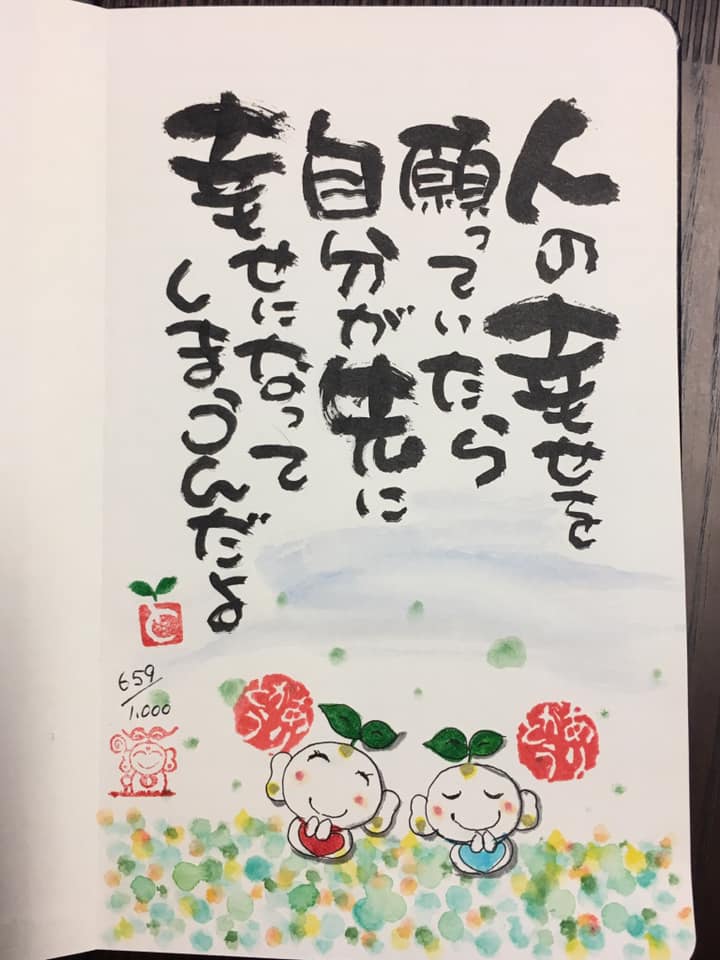 人の幸せを
願っていたら
自分が先に
幸せになって
しまうんだね
659/1.000